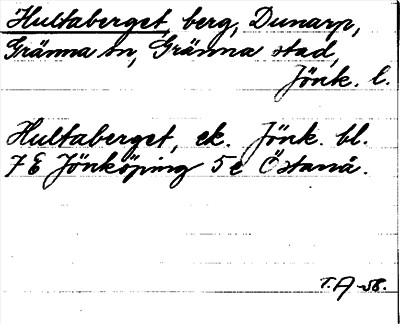 Hultaberget, berg, Dunarp,
Gränna sn, Gränna stad,
Jönk. l.
Hultaberget, ek. Jönk. bl.
7 E Jönköping 5e Östanå.
T.A -58.